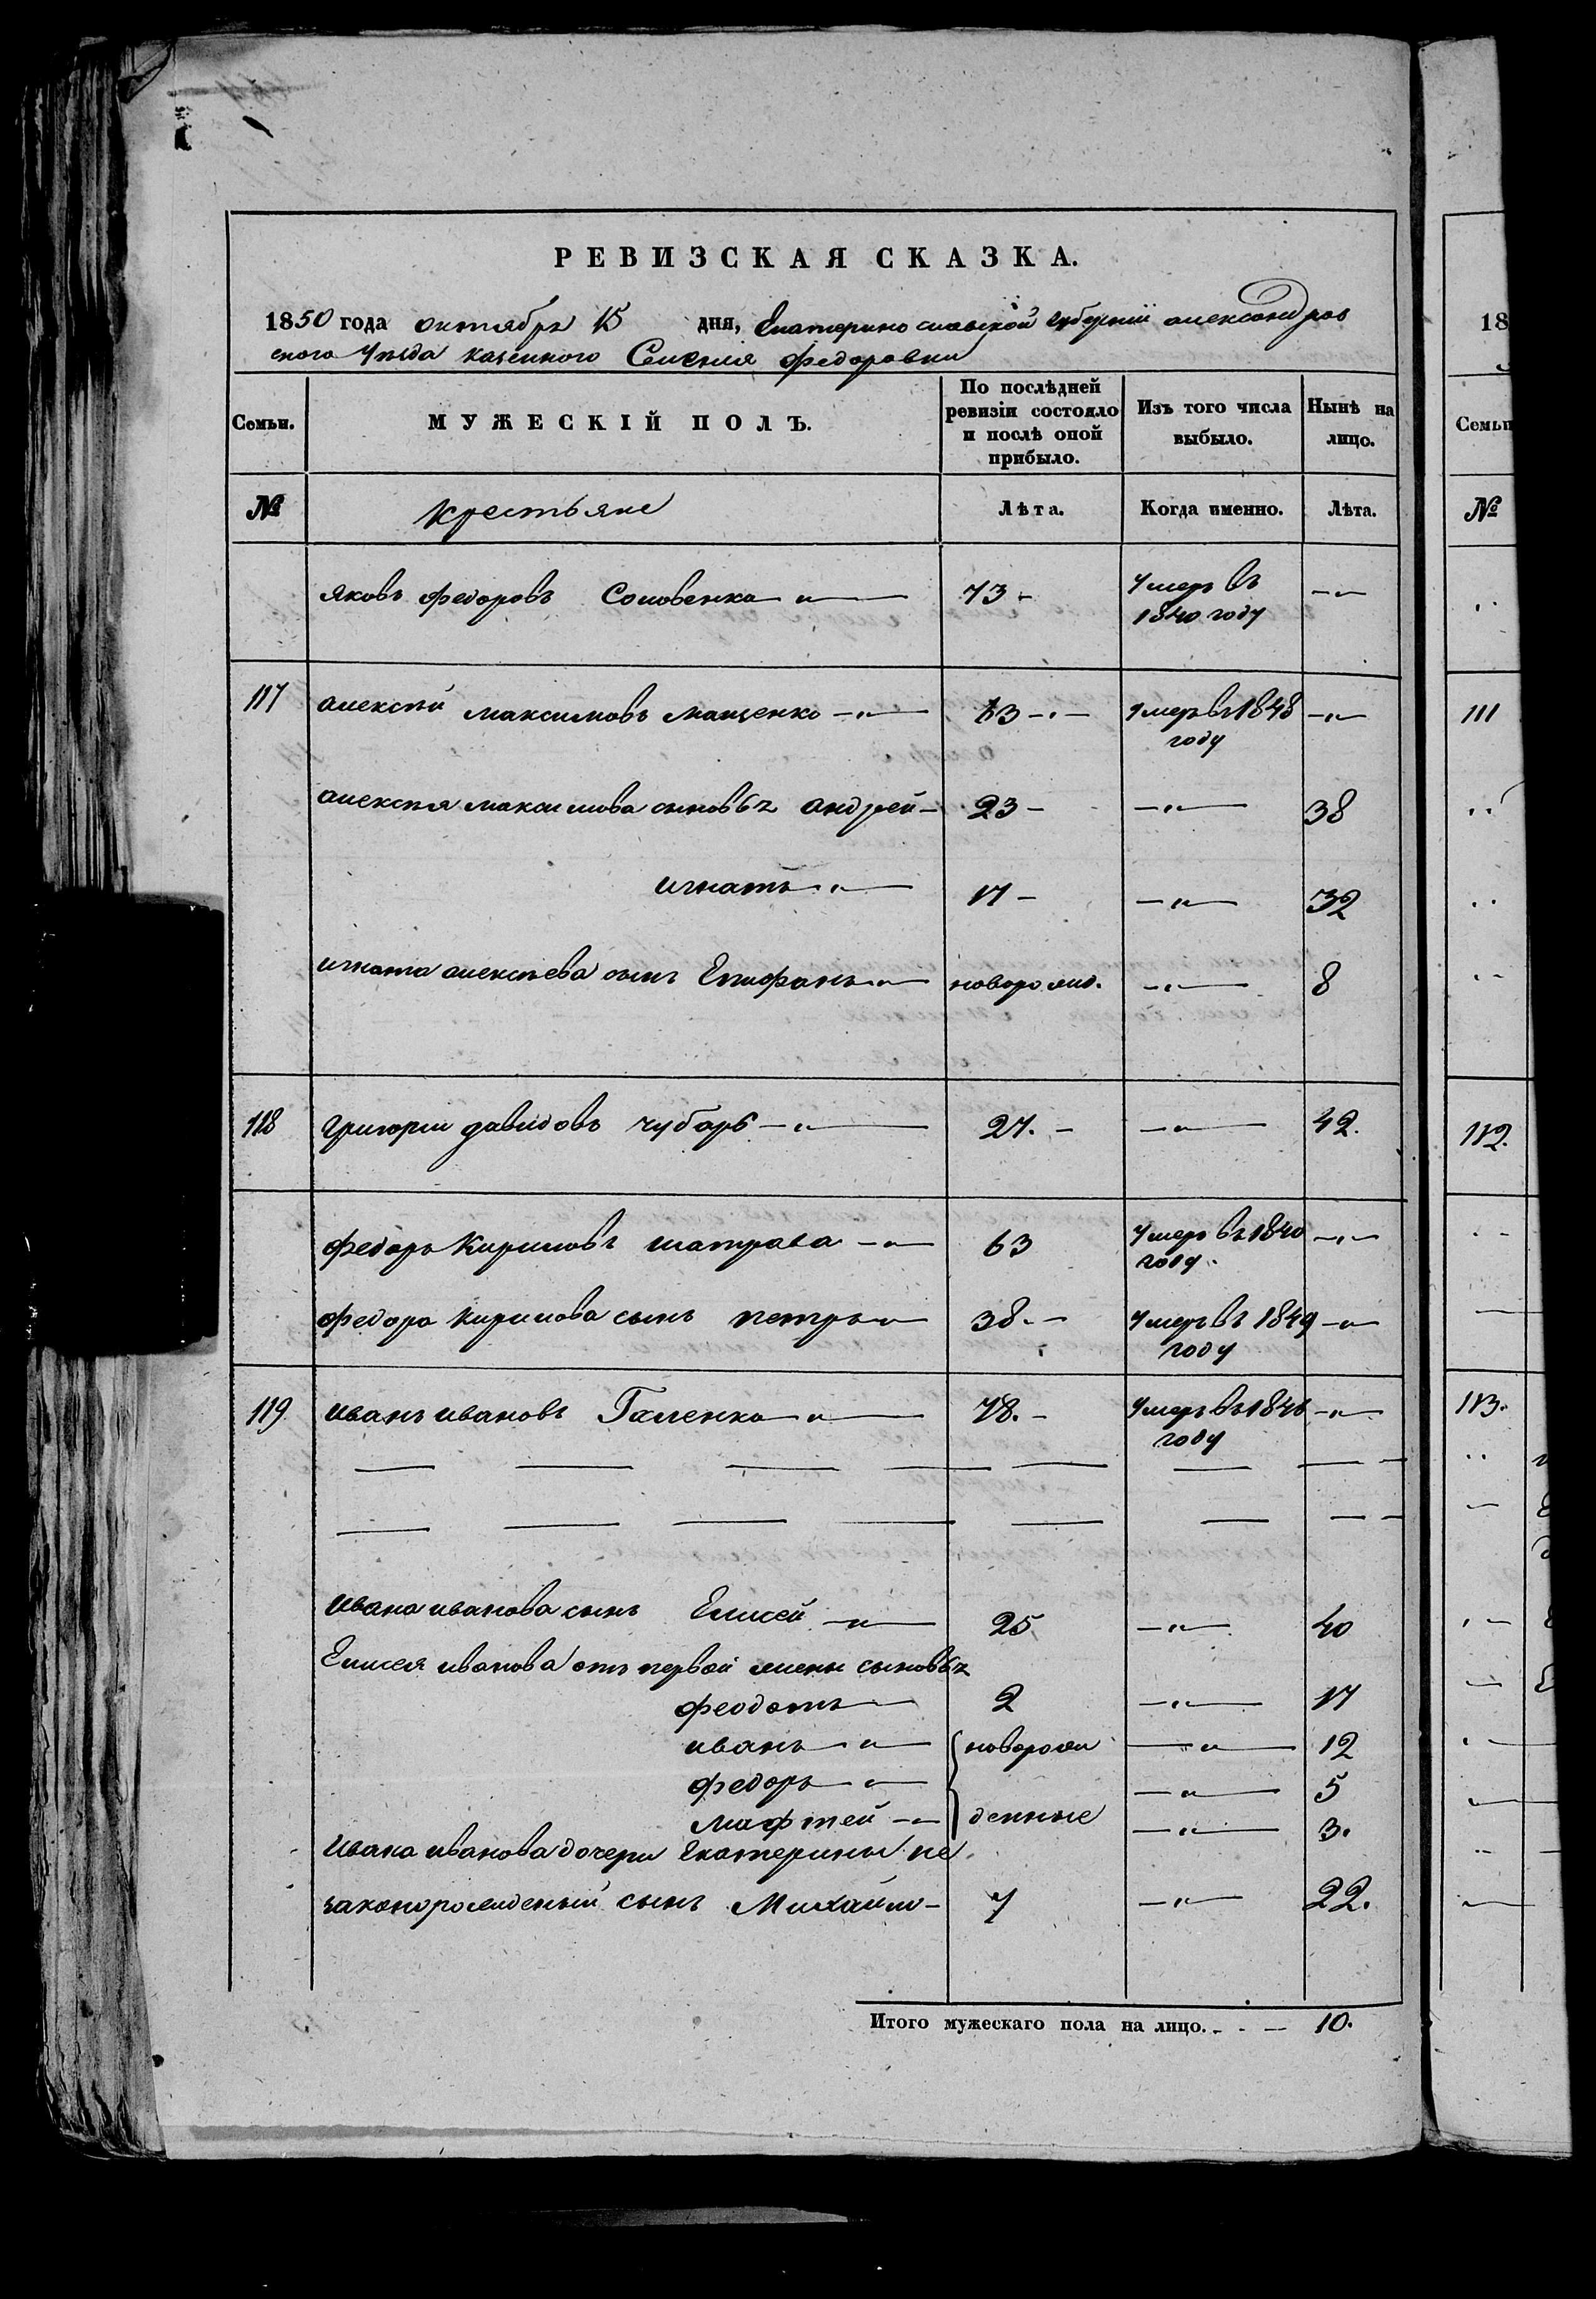 РЕВИЗСКАЯ СКАЗКА.
1850 года октября 15 дня, Екатеринославской губернии александров
ского уезда казенного Селения федоровки
Семьи. МУЖЕСКІЙ ПОЛЪ. По послѣдней ревизіи состояло и послѣ оной прибыло. Изъ того числа выбыло. Нынѣ на лицо.
№ крестьяне Лѣта. Когда именно. Лѣта.
яковъ федоровъ Соловенко 73 умеръ въ 1840 году
117 алексѣй максимовъ мащенко 63 умеръ въ 1848 году
алексѣя максимова сыновья андрей 23 38
игнатъ 17 32
игната алексѣева сынъ Епифанъ новорожд. 8
118 григорий давидовъ чубарь 27. 42.
федоръ Кириловъ шатрава 63 умеръ въ 1840 году.
федора кирилова сынъ петръ 38. умеръ въ 1849 году
119 иванъ ивановъ Галенко 78. умеръ въ 1846 году
ивана иванова сынъ Елисей 25 40
Елисея иванова отъ первой жены сыновья
феодотъ 2 17
иванъ новорож 12
федоръ 5
мафтей денные 3.
ивана иванова дочери екатерины не
законорожденый сынъ Михайло 7 22.
Итого мужескаго пола на лицо. 10.
18
Семьи
№
111
112.
113.